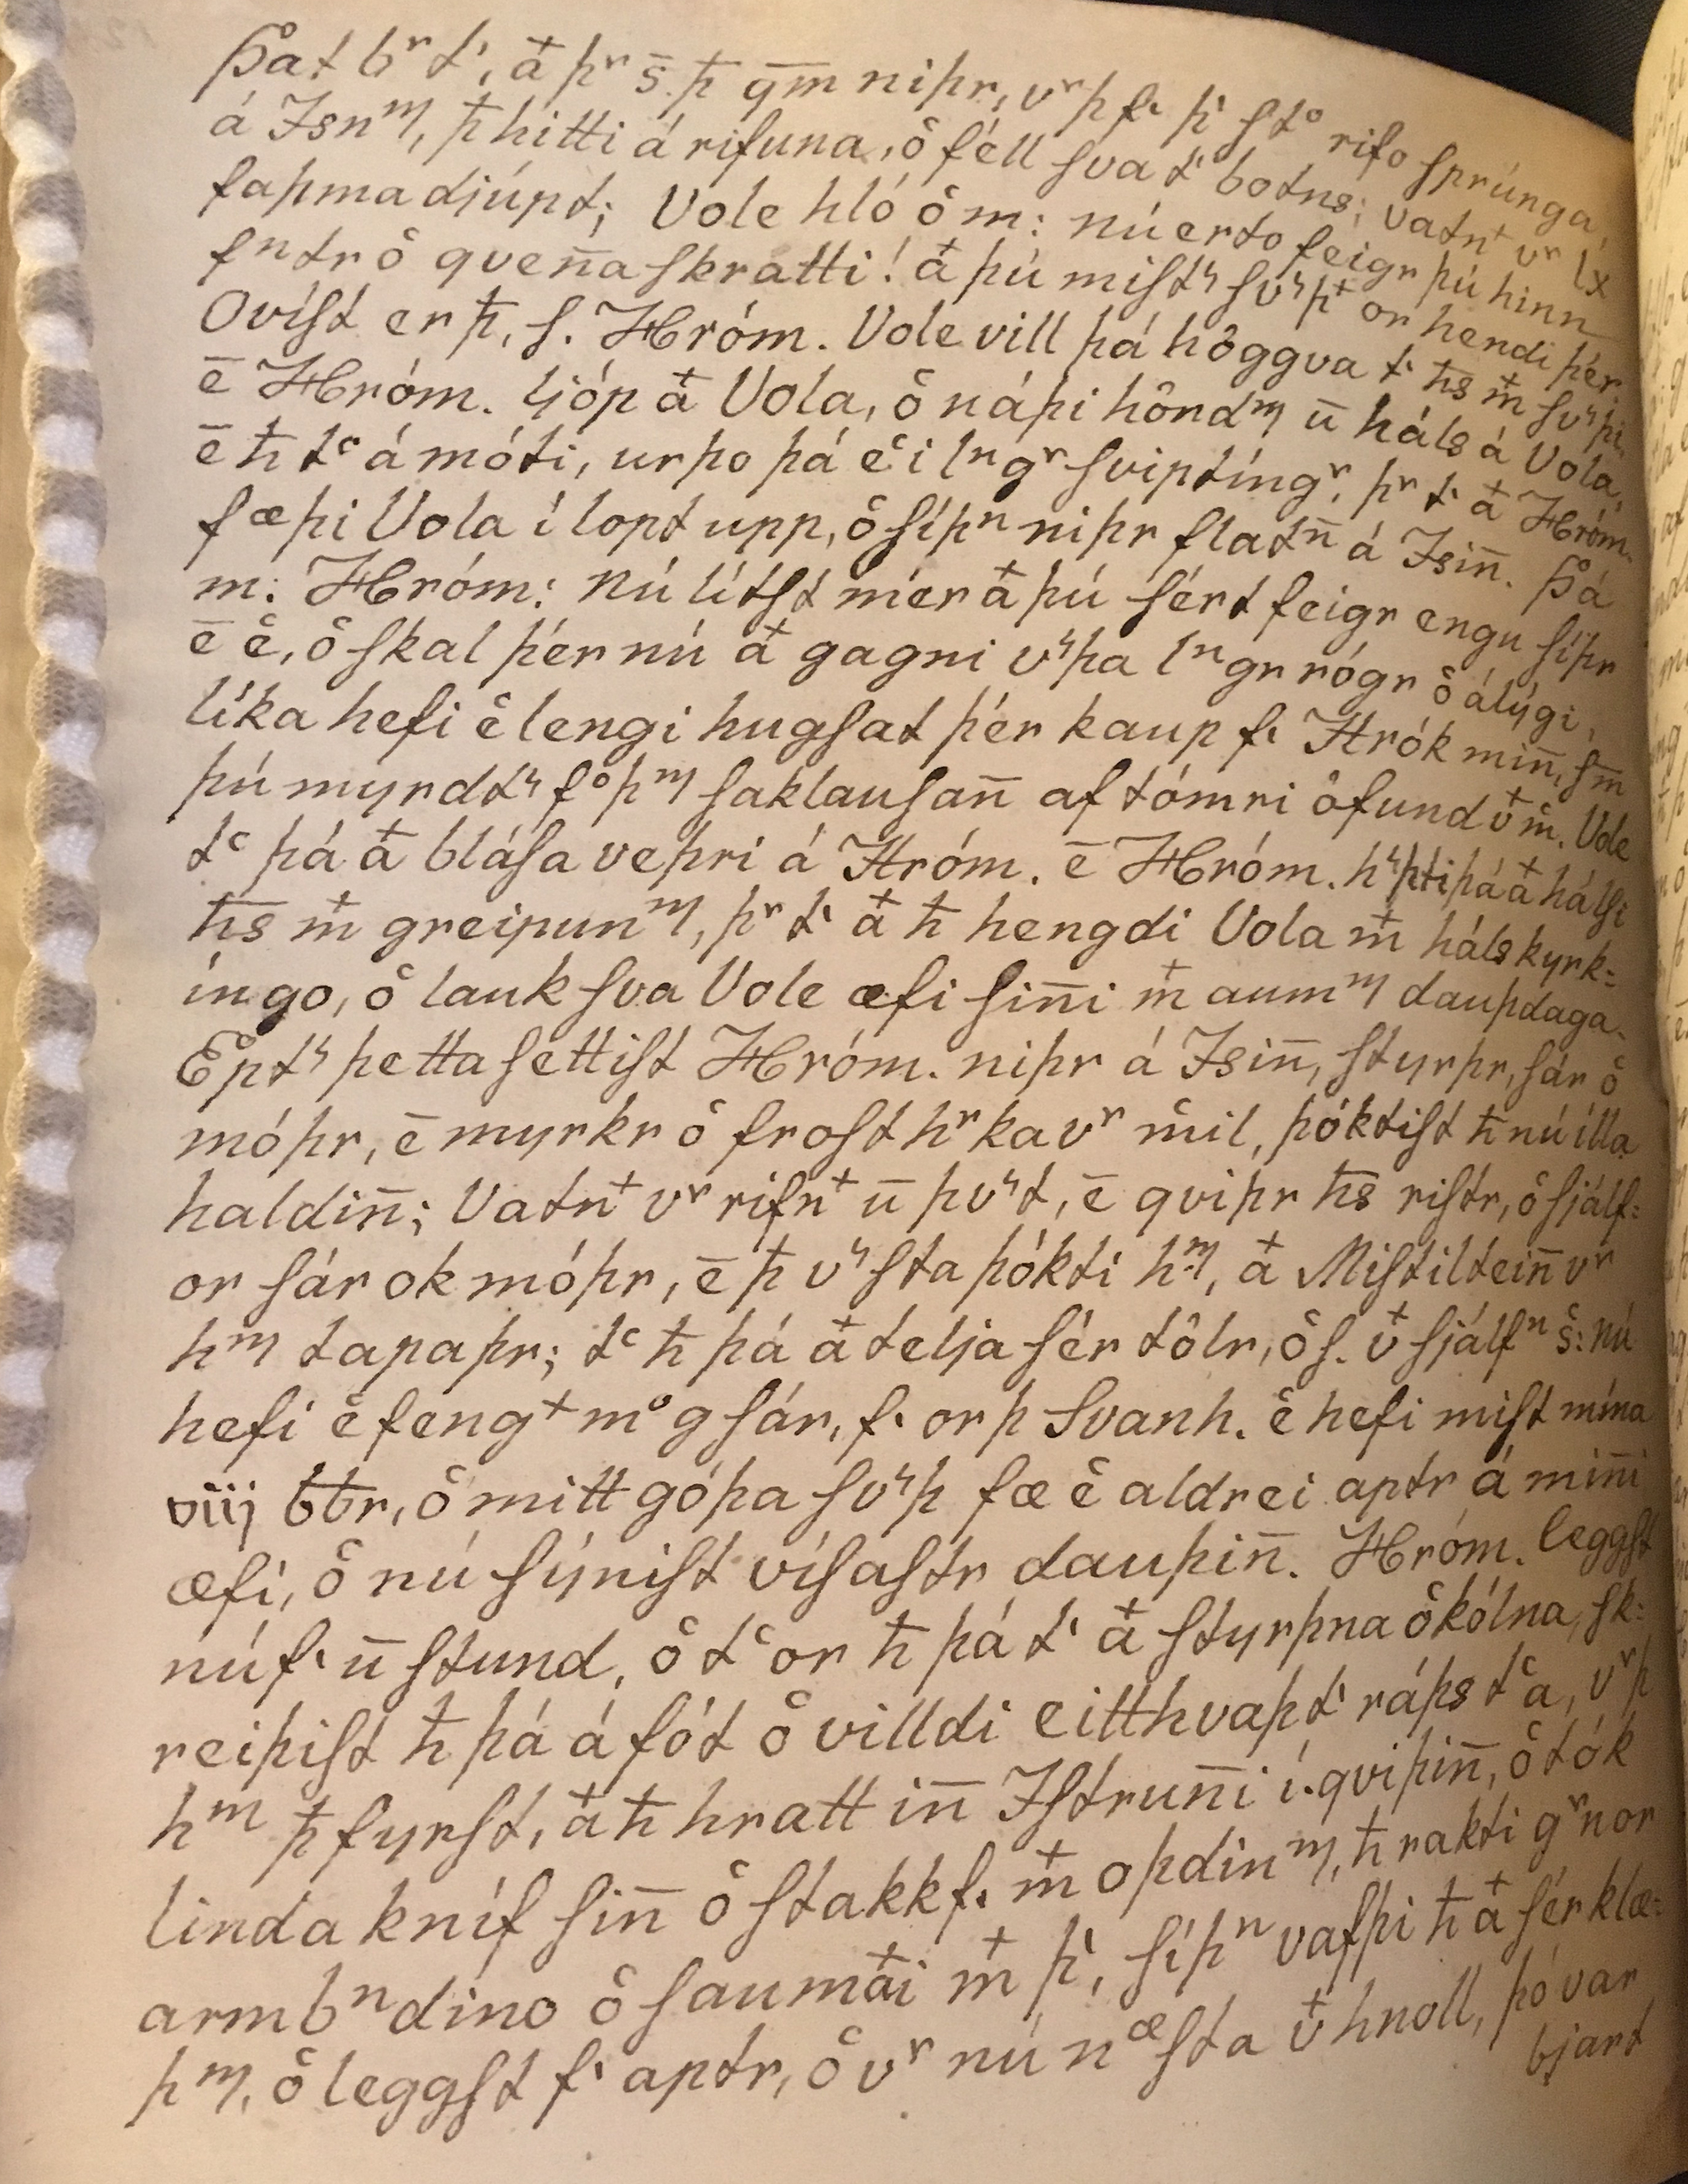 Þat bͬ tͥ, a᷒ þͬ s̄. ꝥ qm̄ niþr, vͬþ fͥ þͥ stͦ rifo sprúnga,
á Isnᵐ, ꝥ hitti á rifuna, ô féll sva tͥ botns; vatn⁺ vͬ lx
faþma djúpt; Vole hló ô m: nú erto feigr þú hinn
fⁿtr ô qven̄askratti! a᷒ þú mist͛ sv͛þ⁺ or hendi þér.
Ovíst er ꝥ, s. Hróm. Vole vill þá hôggva tͥ ħs m᷒ sv͛þi
ē Hróm. ljóp a᷒ Vola, ô náþi hôndᵐ ū háls á Vola,
ē ħ tͨ á móti, urþo þá ê i lⁿgͬ sviptíngͬ, þͬ tͥ a᷒ Hróm.
fæþi Vola í lopt upp, ô síþⁿ niþr flatn̄ á Isin̄. Þá
m: Hróm: nú lítst mér a᷒ þú sért feigr engu síþr
ē ê, ô skal þér nú a᷒ gagni v͛þa lⁿgr rógr ô álýgi,
líka hefi ê lengi hugsat þér kaup fͥ Hrók min̄, sm̄
þú myrdt͛ fͦþᵐ saklausan̄ af tómri ôfund v᷒ m̊. Vole
tͨ þá a᷒ blása veþri á Hróm. ē Hróm. h͛þti þá a᷒ hálsi
ħs m᷒ greipunᵐ, þͬ tͥ a᷒ ħ hengdi Vola m᷒ hálskyrk=
íngo, ô lauk sva Vole æfi sin̄i m᷒ aumᵐ dauþdaga.
Ept͛ þetta settist Hróm. niþr á Isin̄, styrþr, sár ô
móþr, ē myrkr ô frost hͬka vͬ m̊il, þóktist ħ nú illa
haldin̄; Vatn⁺ vͬ rifn⁺ ū þv͛t, ē qviþr ħs ristr, ô sjálf=
or sár ok móþr, ē ꝥ v͛sta þókti hᵐ, a᷒ Mistiltein̄ vͬ
hᵐ tapaþr; tͨ ħ þá a᷒ telja sér tôlr, ô s. v᷒ sjálfⁿ s̊: nú
hefi ê feng⁺ mͦg sár, fͥ orþ Svanh. ê hefi mist mína
viij bꝉr, ô mitt góþa sv͛þ fæ ê aldrei aptr á min̄i
æfi, ô nú sýnist vísastr dauþin̄. Hróm. leggst
nú fͥ ū stund, ô tͨor ħ þá tͥ a᷒ styrþna ô kólna, sk=
reiþist ħ þá á fót ô villdi eitthvaþ tͥ ráþs tͨa, vͬþ
hᵐ ꝥ fyrst, a᷒ ħ hratt in̄ Istrun̄i í qviþin̄, ô tók
linda kníf sin̄ ô stakk fͥ m᷒ oþdinᵐ, ħ rakti gͬn or
armbⁿdino ô saumai᷒ m᷒ þͥ, síþⁿ vafþi ħ a᷒ sér klæ=
þᵐ, ô leggst fͥ aptr, ô vͬ nú næsta v᷒ hnoll, þó var
bjart